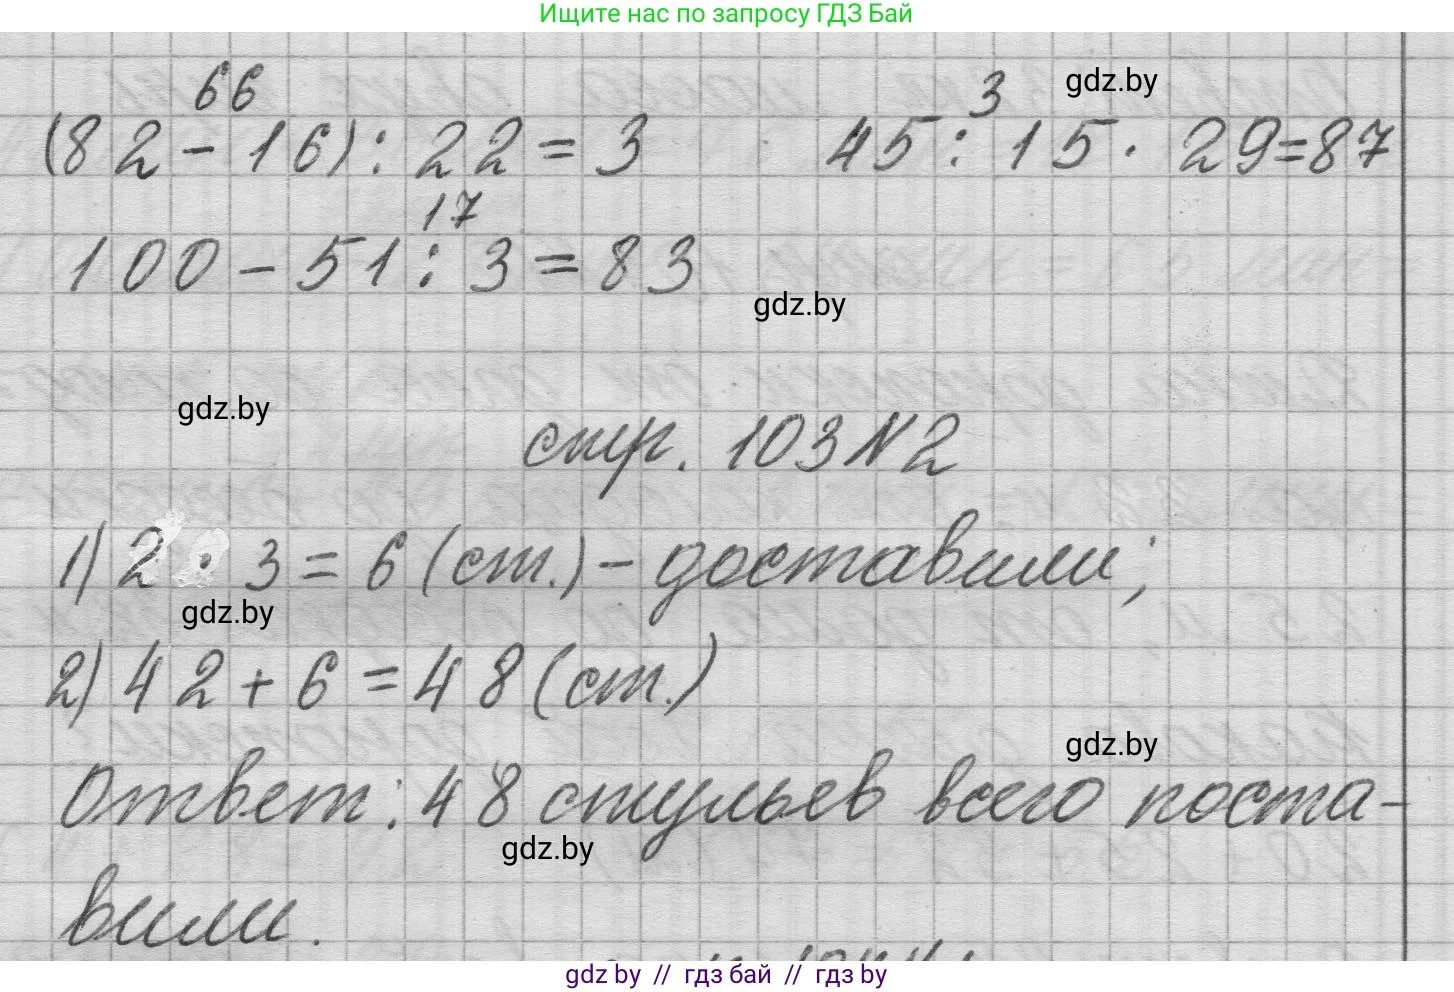 Ищите нас по запросу ГДЗ Бай
66
(82-16):22=3
3
45:15·29=87
gdz.by
17
100-51:3=83
gdz.by
gdz.by
стр. 103 N2
1) 2·3=6 (ст.) - доставили;
gdz.by
2) 42+6=48 (ст.)
gdz.by
Ответ: 48 стульев всего поста-
gdz.by
вили.
gdz by // гдз бай // гдз by